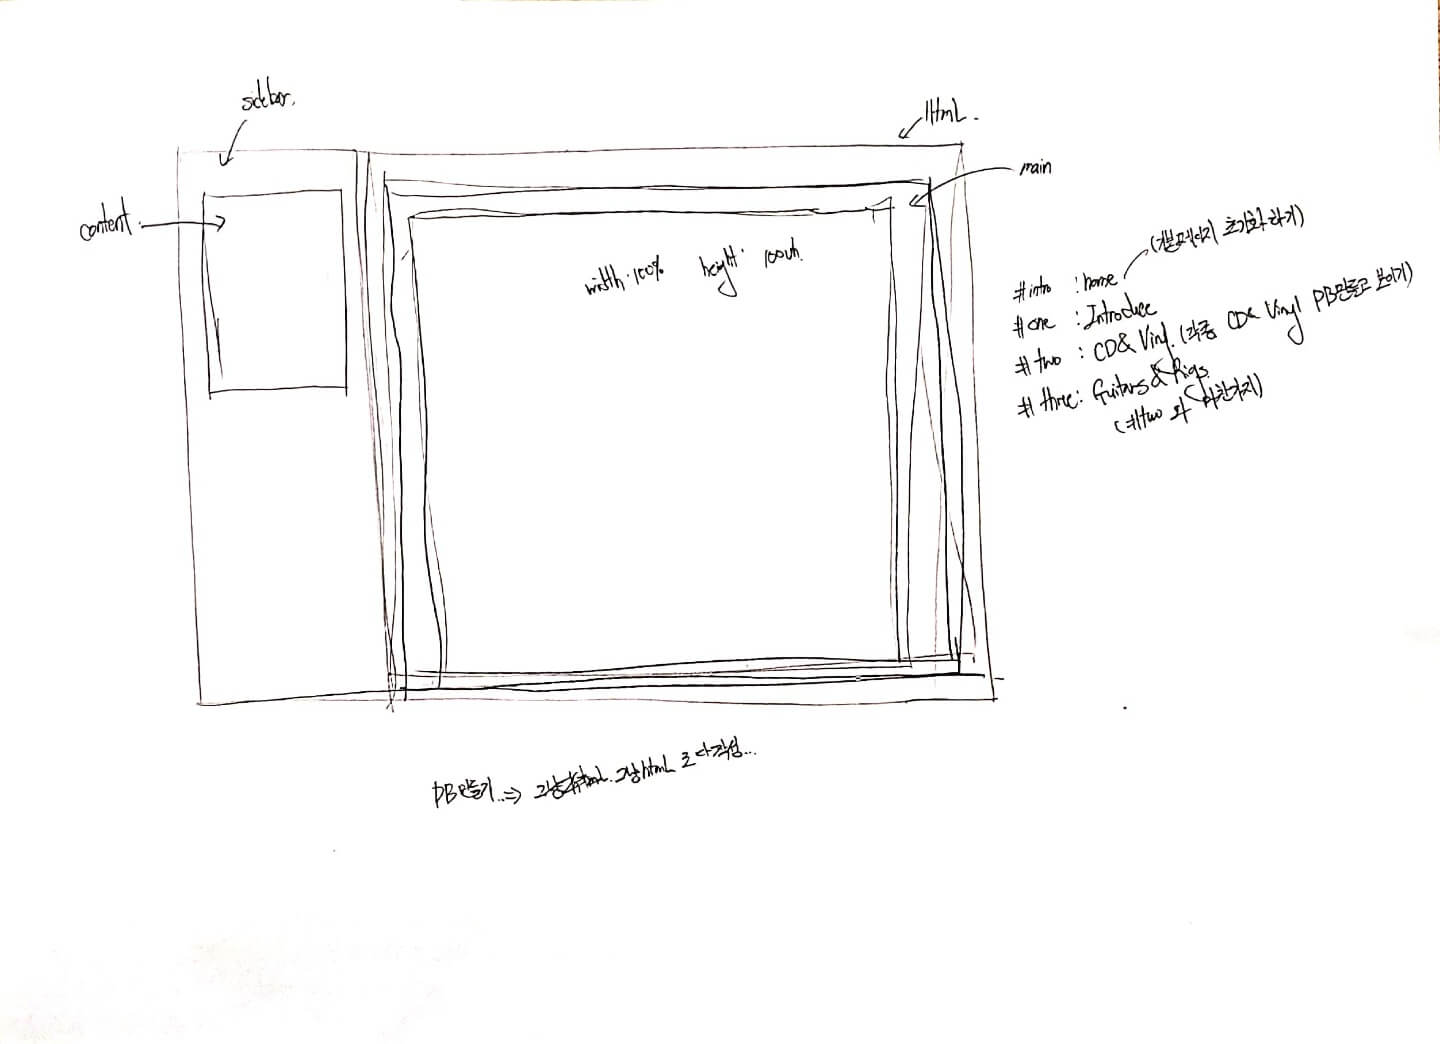 sidebar.
Html.
main
content.
width: 100% height: 100vh.
(기본페이지 초기화 하기)
#intro : home
#one : Introduce
#two : CD& Vinyl. (각종 CD& Vinyl PB만들고 보이기)
#three: Guitars & Rigs.
(#two 와 마찬가지)
PB만들기..⇒ 그냥 html로 다 작성...